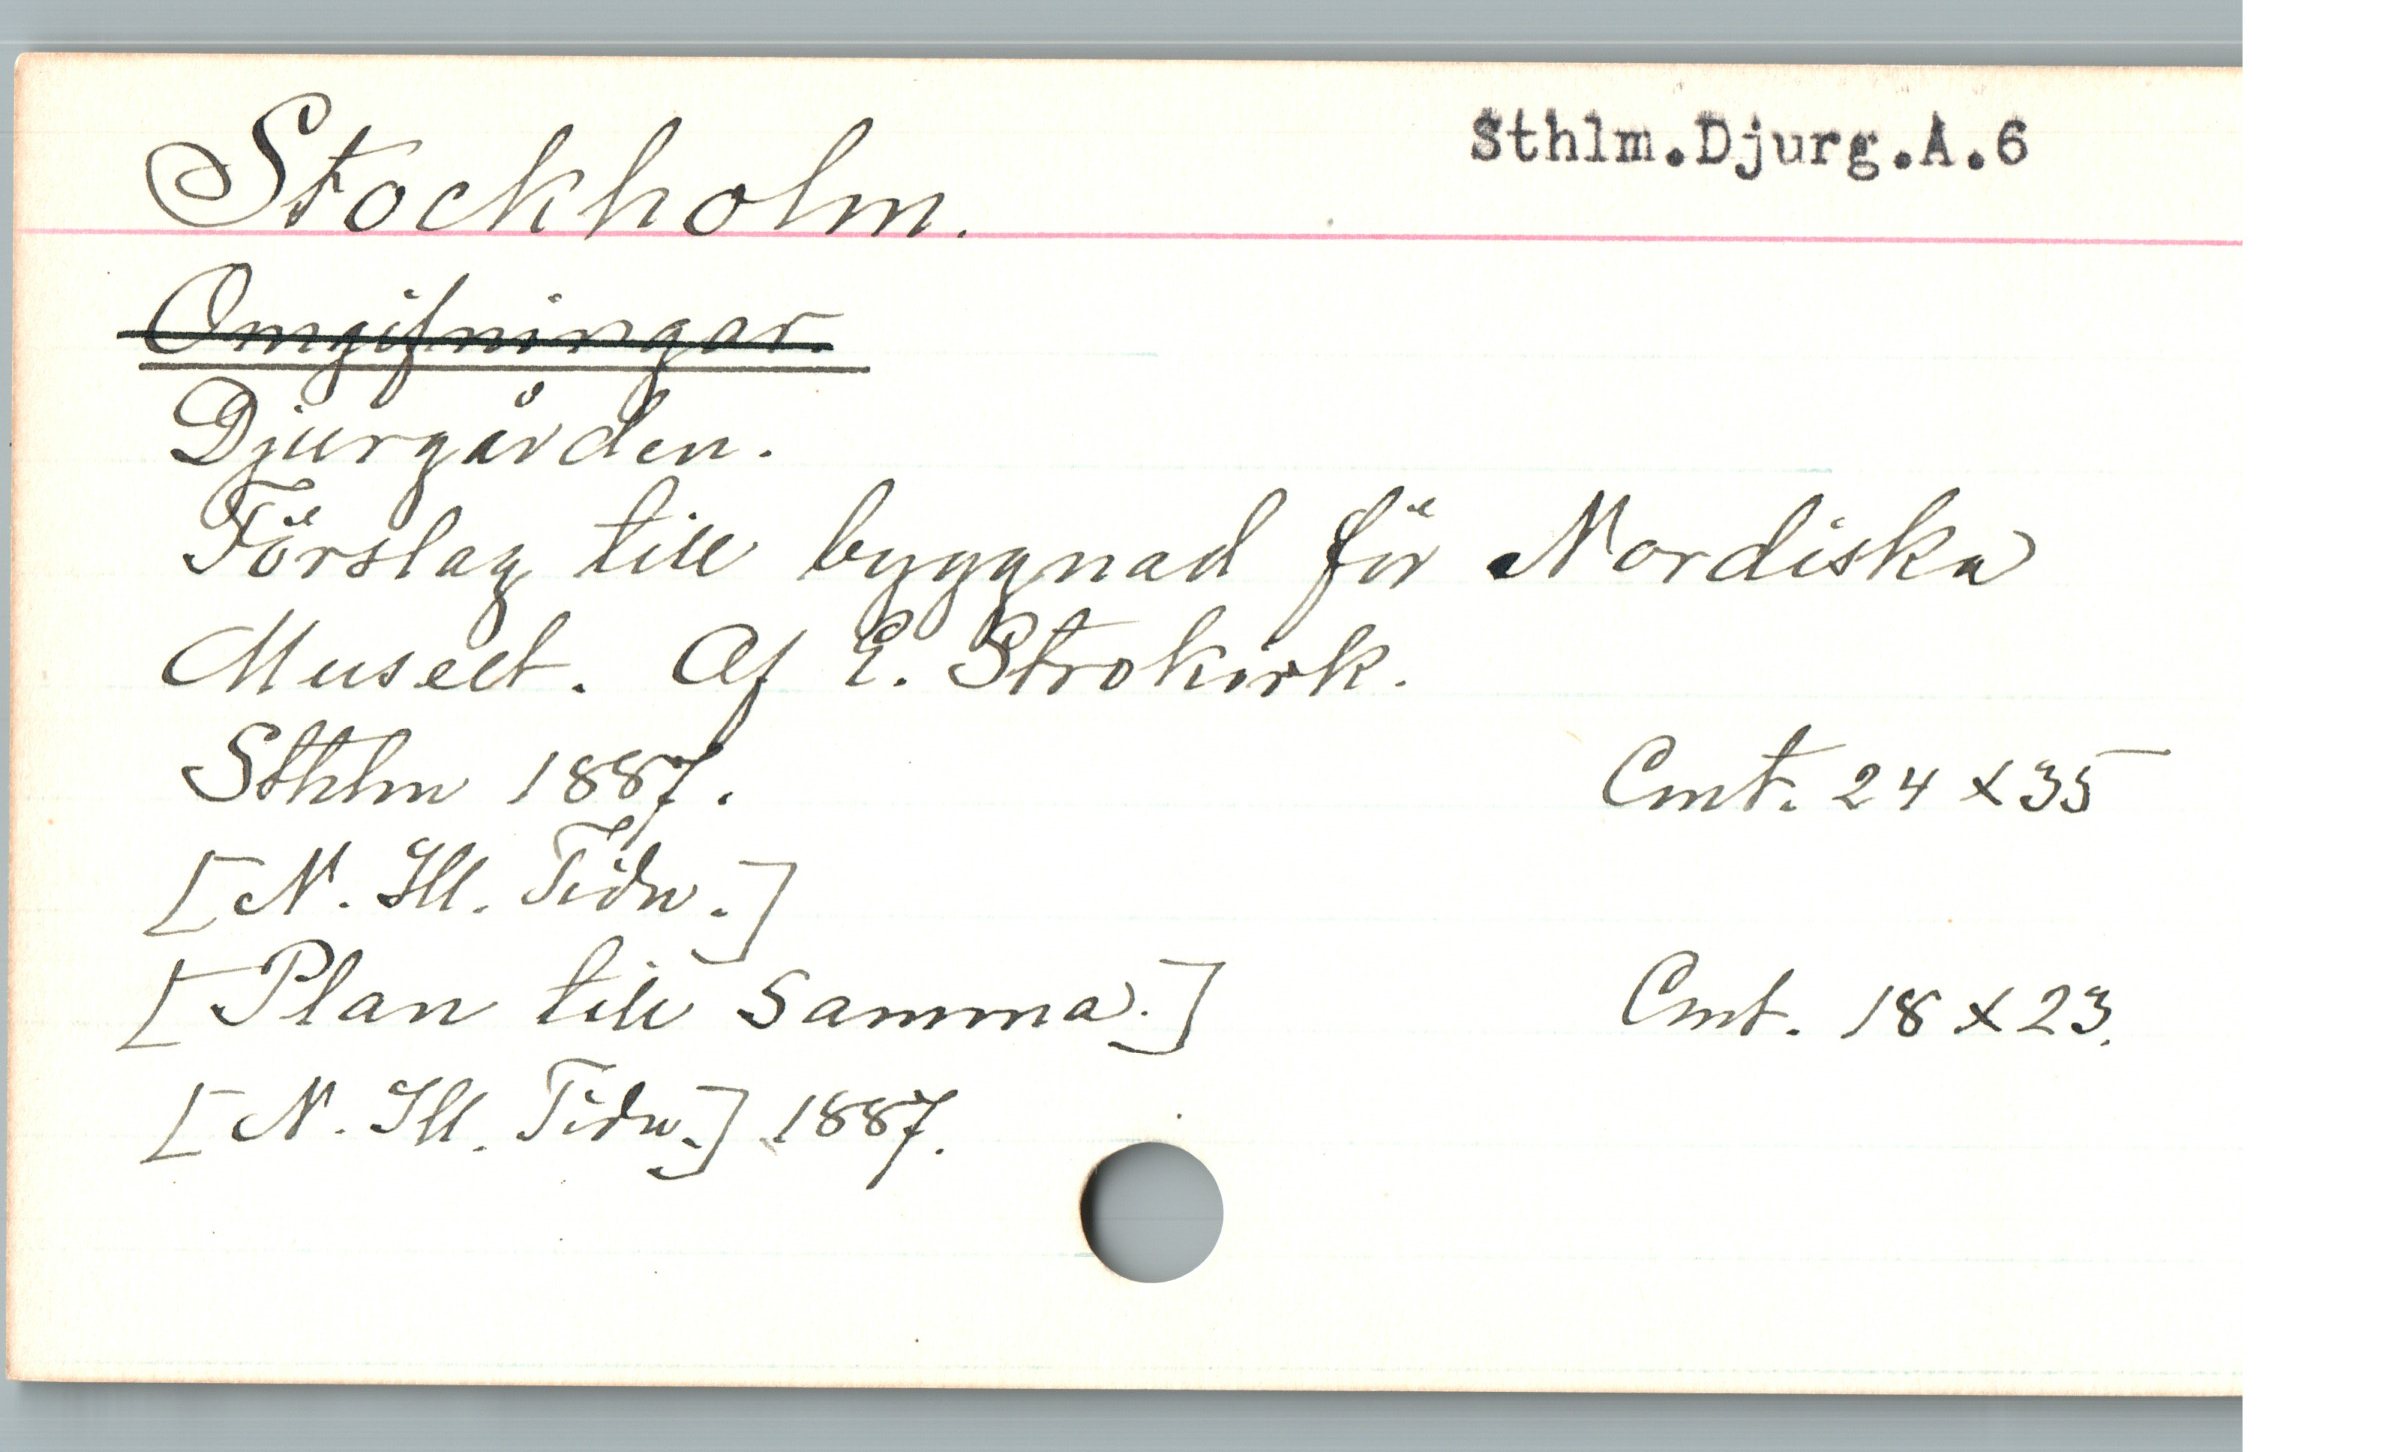 Stockholm.
Sthlm.Djurg.A.6
Omgifningar.
Djurgården.
Förslag till byggnad för Nordiska
Museet. Af E. Strokirk.
Sthlm 1887. Cmt. 24 x 35
[N. Ill. Tidn.]
[Plan till samma.] Cmt. 18 x 23.
[N. Ill. Tidn.] 1887.